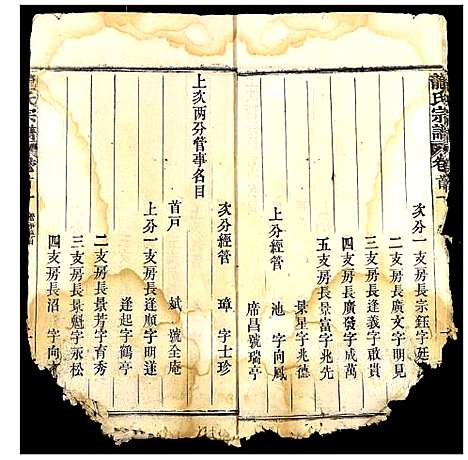 龍氏宗譜 卷首
次分一支房長宗鈺字廷
二支房長廣文字明見
三支房長逢義字敢貴
四支房長廣發字成萬
五支房長景富字兆先
景星字兆德
上分經管 池 字向鳳
席昌號瑞亭
次分經管 璋 字士珍
上次两分管事名目
首戸 斌 號全庵
上分一支房長逢順字明遠
逢起字鶴亭
二支房長景芳字育秀
三支房長景魁字永松
四支房長沼 字向
氏宗譜 卷首